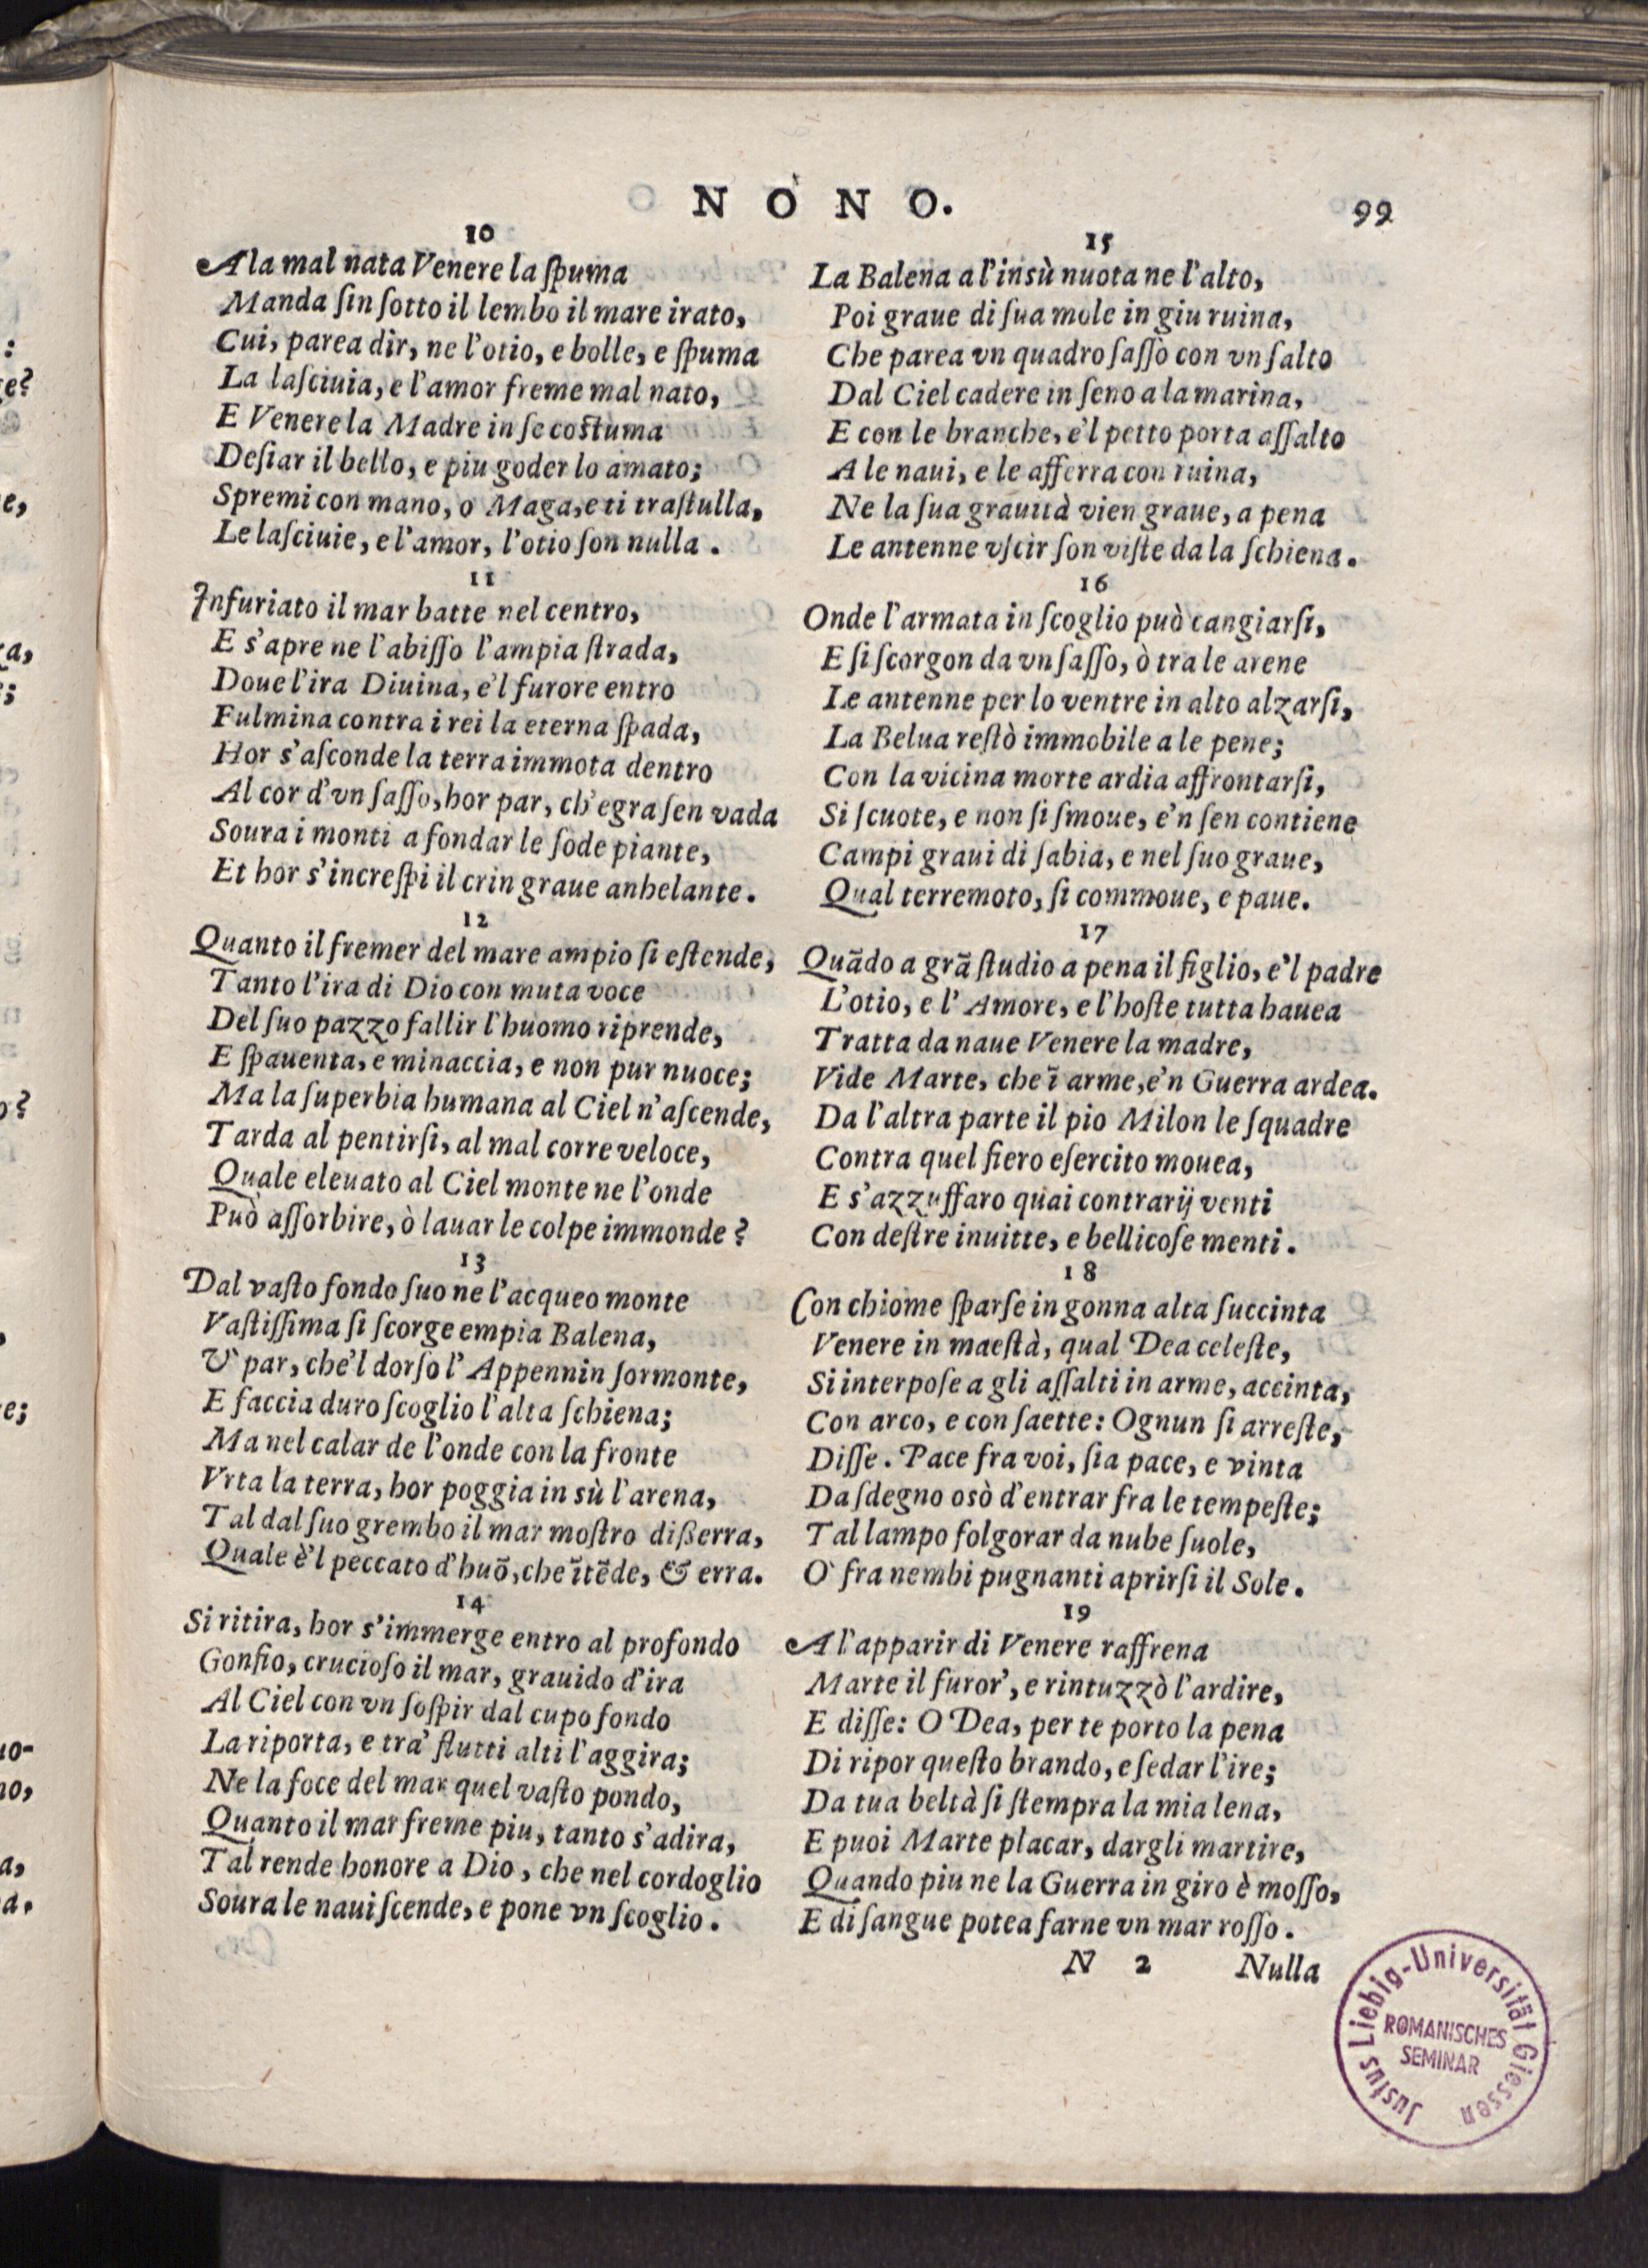 NONO.
99
10
A la mal nata Venere la ſpuma
Manda ſin ſotto il lembo il mare irato,
Cui, parea dir, ne l'otio, e bolle, e ſpuma
La laſciuia, e l'amor freme mal nato,
E Venere la Madre in ſe coſtuma
Deſiar il bello, e piu goder lo amato;
Spremi con mano, o Maga, e ti traſtulla,
Le laſciuie, e l'amor, l'otio ſon nulla.
11
Infuriato il mar batte nel centro,
E s'apre ne l'abiſſo l'ampia ſtrada,
Doue l'ira Diuina, e'l furore entro
Fulmina contra i rei la eterna ſpada,
Hor s'aſconde la terra immota dentro
Al cor d'vn ſaſſo, hor par, ch'egra ſen vada
Soura i monti a fondar le ſode piante,
Et hor s'increſpi il crin graue anhelante.
12
Quanto il fremer del mare ampio ſi eſtende,
Tanto l'ira di Dio con muta voce
Del ſuo pazzo fallir l'huomo riprende,
E ſpauenta, e minaccia, e non pur nuoce;
Ma la ſuperbia humana al Ciel n'aſcende,
Tarda al pentirſi, al mal corre veloce,
Quale eleuato al Ciel monte ne l'onde
Può aſſorbire, ò lauar le colpe immonde?
13
Dal vaſto fondo ſuo ne l'acqueo monte
Vaſtiſſima ſi ſcorge empia Balena,
V' par, che'l dorſo l'Appennin ſormonte,
E faccia duro ſcoglio l'alta ſchiena;
Ma nel calar de l'onde con la fronte
Vrta la terra, hor poggia in sù l'arena,
Tal dal ſuo grembo il mar moſtro dißerra,
Quale è'l peccato d'huō, che ĩtẽde, & erra.
14
Si ritira, hor s'immerge entro al profondo
Gonfio, crucioſo il mar, grauido d'ira
Al Ciel con vn ſoſpir dal cupo fondo
La riporta, e tra' flutti alti l'aggira;
Ne la foce del mar quel vaſto pondo,
Quanto il mar freme piu, tanto s'adira,
Tal rende honore a Dio, che nel cordoglio
Soura le naui ſcende, e pone vn ſcoglio.
15
La Balena a l'insù nuota ne l'alto,
Poi graue di ſua mole in giu ruina,
Che parea vn quadro ſaſſo con vn ſalto
Dal Ciel cadere in ſeno a la marina,
E con le branche, e'l petto porta aſſalto
A le naui, e le afferra con ruina,
Ne la ſua grauità vien graue, a pena
Le antenne vſcir ſon viſte da la ſchiena.
16
Onde l'armata in ſcoglio può cangiarſi,
E ſi ſcorgon da vn ſaſſo, ò tra le arene
Le antenne per lo ventre in alto alzarſi,
La Belua reſtò immobile a le pene;
Con la vicina morte ardia affrontarſi,
Si ſcuote, e non ſi ſmoue, e'n ſen contiene
Campi graui di ſabia, e nel ſuo graue,
Qual terremoto, ſi commoue, e paue.
17
Quādo a grā ſtudio a pena il figlio, e'l padre
L'otio, e l'Amore, e l'hoſte tutta hauea
Tratta da naue Venere la madre,
Vide Marte, che ĩ arme, e'n Guerra ardea.
Da l'altra parte il pio Milon le ſquadre
Contra quel fiero eſercito mouea,
E s'azzuffaro quai contrarij venti
Con deſtre inuitte, e bellicoſe menti.
18
Con chiome ſparſe in gonna alta ſuccinta
Venere in maeſtà, qual Dea celeſte,
Si interpoſe a gli aſſalti in arme, accinta,
Con arco, e con ſaette: Ognun ſi arreſte,
Diſſe. Pace fra voi, ſia pace, e vinta
Da ſdegno osò d'entrar fra le tempeſte;
Tal lampo folgorar da nube ſuole,
O' fra nembi pugnanti aprirſi il Sole.
19
A l'apparir di Venere raffrena
Marte il furor', e rintuzzò l'ardire,
E diſſe: O Dea, per te porto la pena
Di ripor queſto brando, e ſedar l'ire;
Da tua beltà ſi ſtempra la mia lena,
E puoi Marte placar, dargli martire,
Quando piu ne la Guerra in giro è moſſo,
E di ſangue potea farne vn mar roſſo.
N 2 Nulla
Justus Liebig-Universität Giessen
ROMANISCHES
SEMINAR